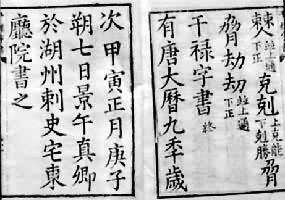 並上通下正克剋上克能下剋勝脅
脅劫刼並上通下正
干禄字書 終
有唐大曆九季歲
次甲寅正月庚子
朔七日景午真卿
於湖州刺史宅東
廳院書之